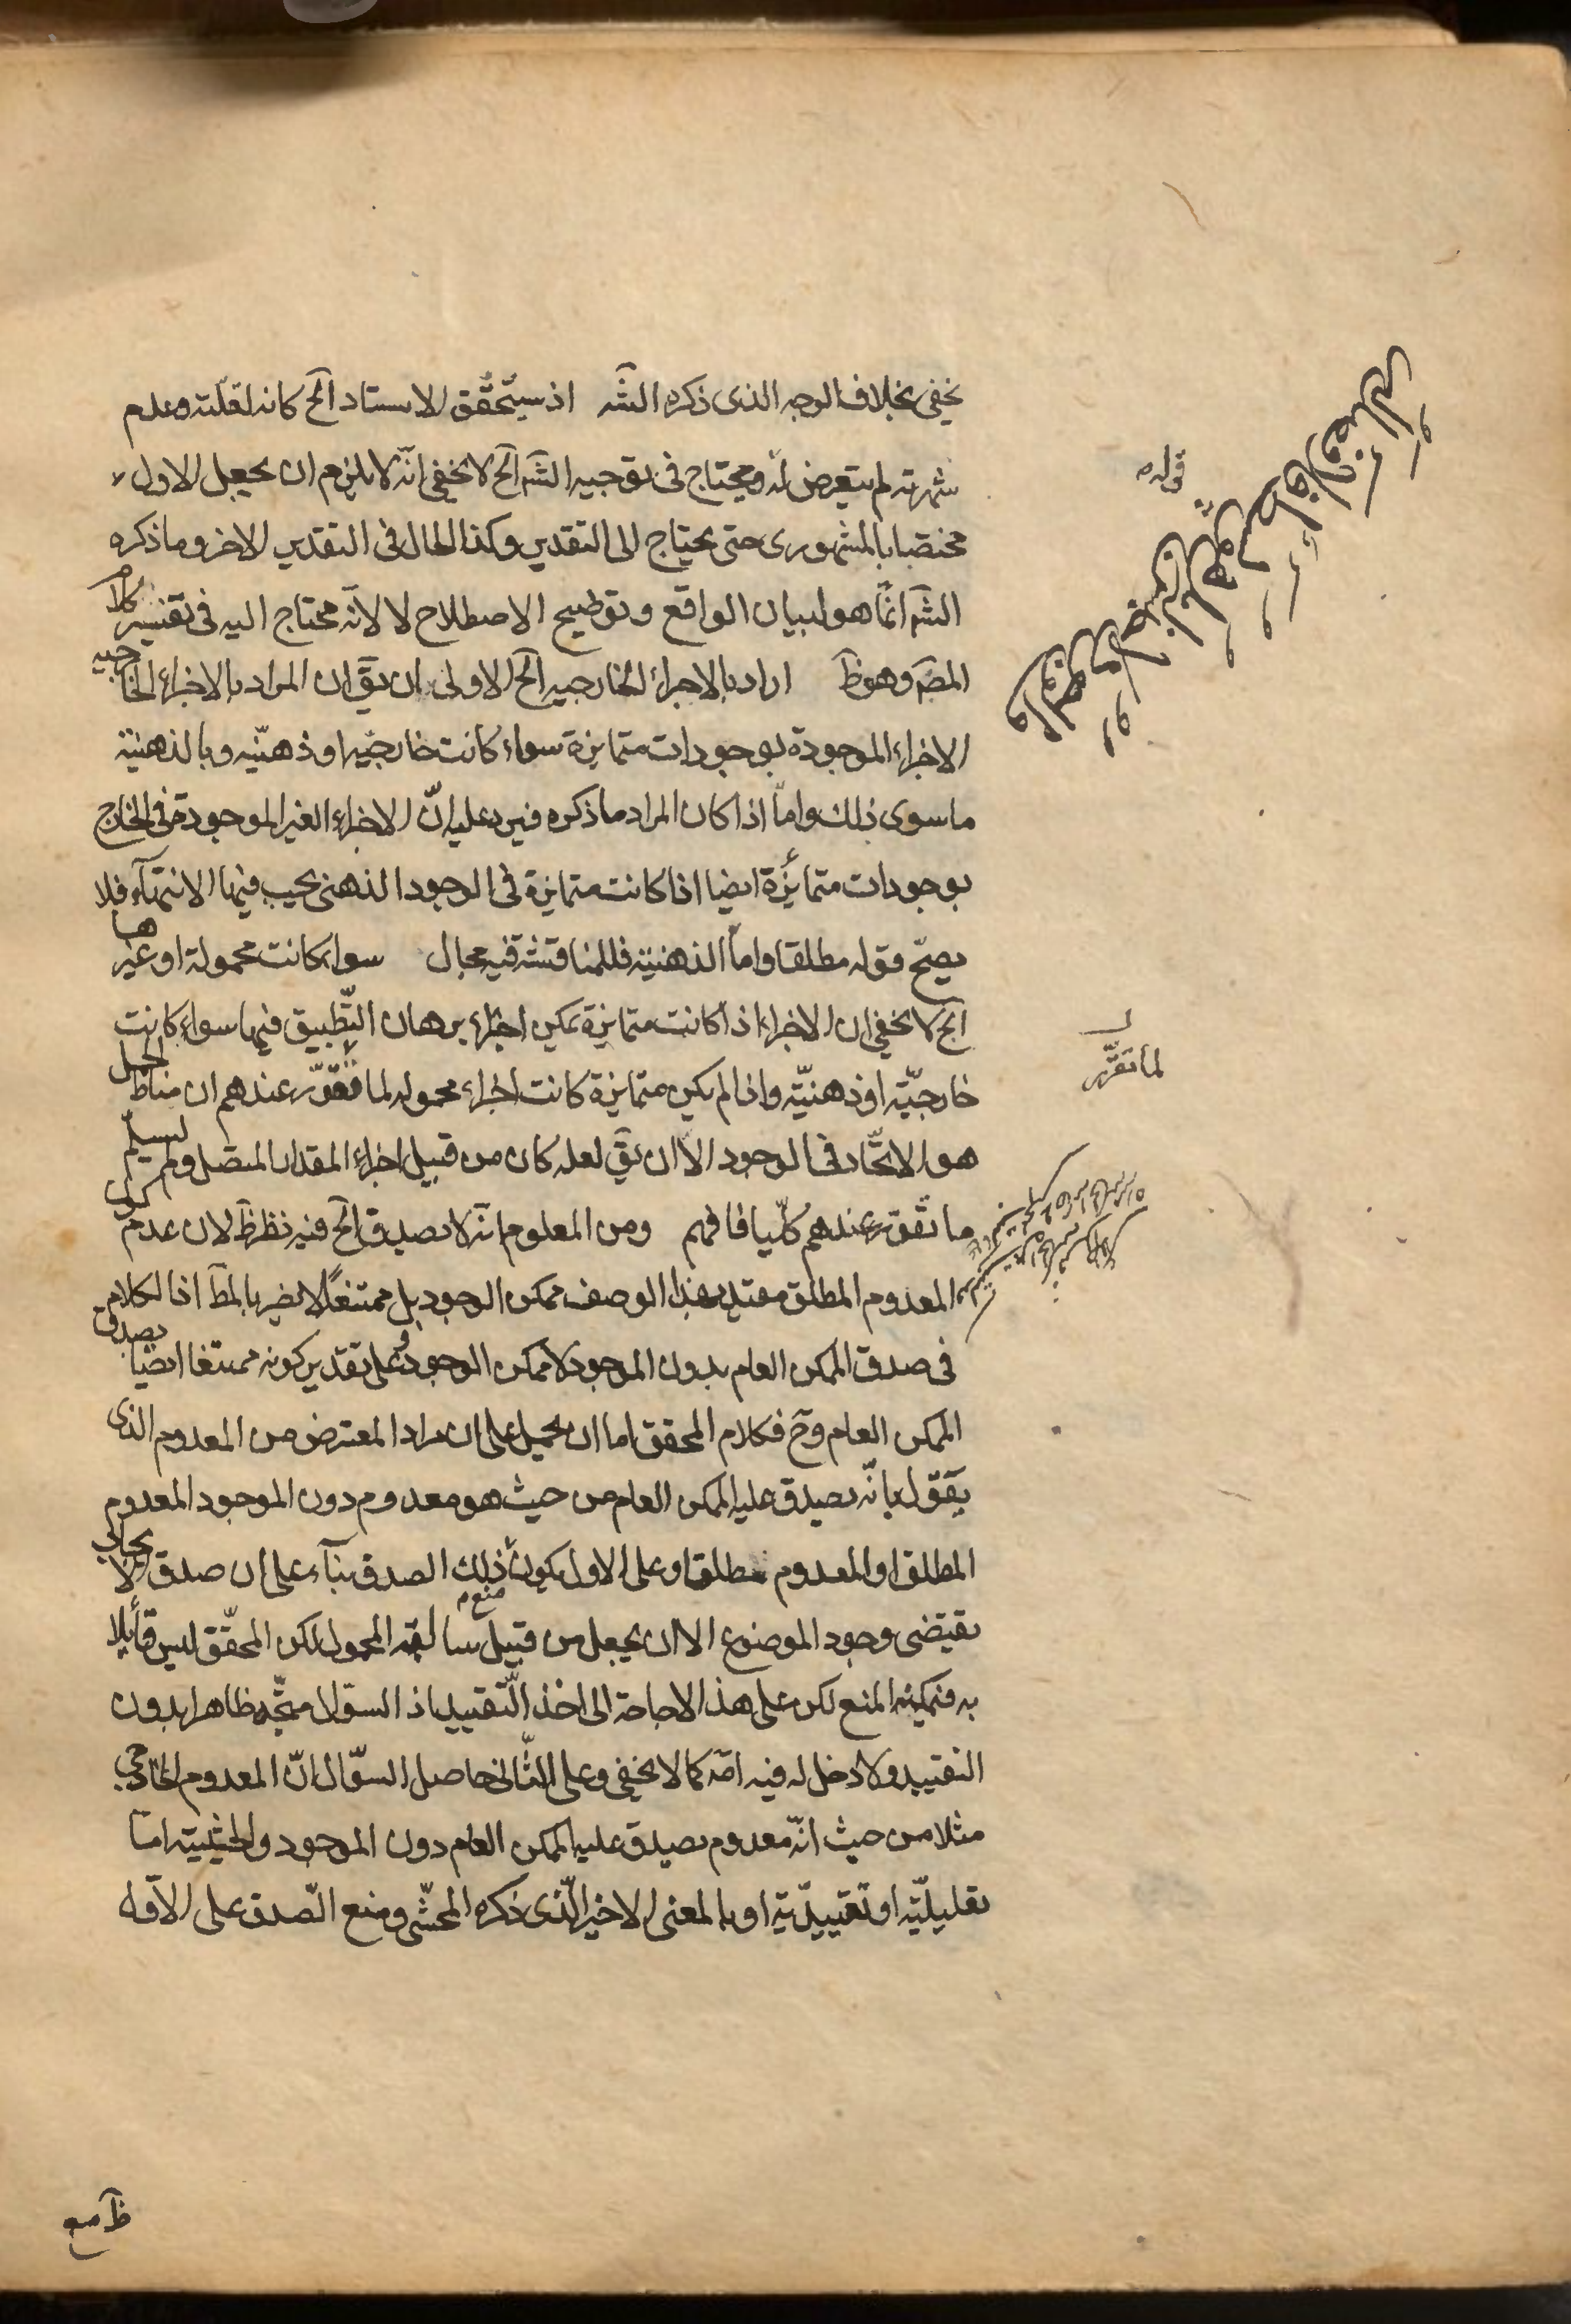 يخفى بخلاف الوجه الذى ذكره الشه اذ سيتحقق الاستاد آلخ كانه لقلّته وعدم
شهرته لم يتعرض له ويحتاج فى توجيه الشه آلخ لا يخفى انّه لا يلزم ان يجعل الاول
مختصا بالمشهورى حتى يحتاج الى التقدير وكذا الحال فى التقدير الاخر وما ذكره
الشه انّما هو لبيان الواقع وتوضيح الاصطلاح لا لانّه محتاج اليه فى تفسير كلام
المصّ وهوظّ اراد بالاجزاء الخارجيه آلخ الاولى ان يقّ ان المراد بالاجزاء الخارجيه
الاجزاء الموجودة بوجودات متمايزة سواء كانت خارجيّه او ذهنيّه وبالذهنية
ما سوى ذلك وامّا اذا كان المراد ما ذكره فيرد عليه انّ الاجزاء الغير الموجودة فى الخارج
بوجودات متمايزة ايضا اذا كانت متمايزة فى الوجود الذهنى يجب فيها الانتهاء فلا
يصحّ قوله مطلقا وامّا الذهنية فللمناقشة فيه مجال سواء كانت محمولة او غيرها
آلخ لا يخفى ان الاجزاء اذا كانت متمايزة يمكن اجراء برهان التّطبيق فيها سواء كانت
خارجيّه او ذهنيّه واذا لم يكن متمايزة كانت اجزاء محموله لما تقرّر عندهم ان مناط الحمل
هو الاتّحاد فى الوجود الّا ان يقّ لعله كان من قبيل اجزاء المقدار المتصل ولم يسلّم
ما تقرّر عندهم كلّيا فافهم ومن المعلوم انّه لا يصدق آلخ فيه نظر ظّ لان عدم كون
المعدوم المطلق مقتد بهذا الوصف ممكن الوجود بل ممتنعًا لا يضر بالمطّ اذ الكلام
فى صدق الممكن العام بدون الموجود لا ممكن الوجود وعلى تقدير كونه ممتنعا ايضا يصدق
الممكن العام وحّ فكلام المحقق اما ان يحمل على ان مراد المعترض من المعدوم الذى
يقول بانّه يصدق عليه الممكن العام من حيث هو معدوم دون الموجود المعدوم
المطلق او المعدوم مطلقا وعلى الاول يكون ذلك الصدق بناء على ان صدق الايجاب لا
يقتضى وجود الموضوع الا ان يجعل من قبيل سالبة المحمول لكن المحقّق ليس قايلا
به فيمكنه المنع لكن على هذا لا حاجة الى اخذ التّقييد اذ السؤال متّجه ظاهرا بدون
التقييد ولا دخل له فيه امّه كما لا يخفى وعلى الثّانى حاصل السؤال انّ المعدوم الخارجى
مثلا من حيث انّه معدوم يصدق عليه الممكن العام دون الموجود والحيثية امّا
تعليليّة او تقييديّة او بالمعنى الاخير الّذى ذكره المحشّى ومنع الصّدق على الاوّل
قوله
لما تقرّر